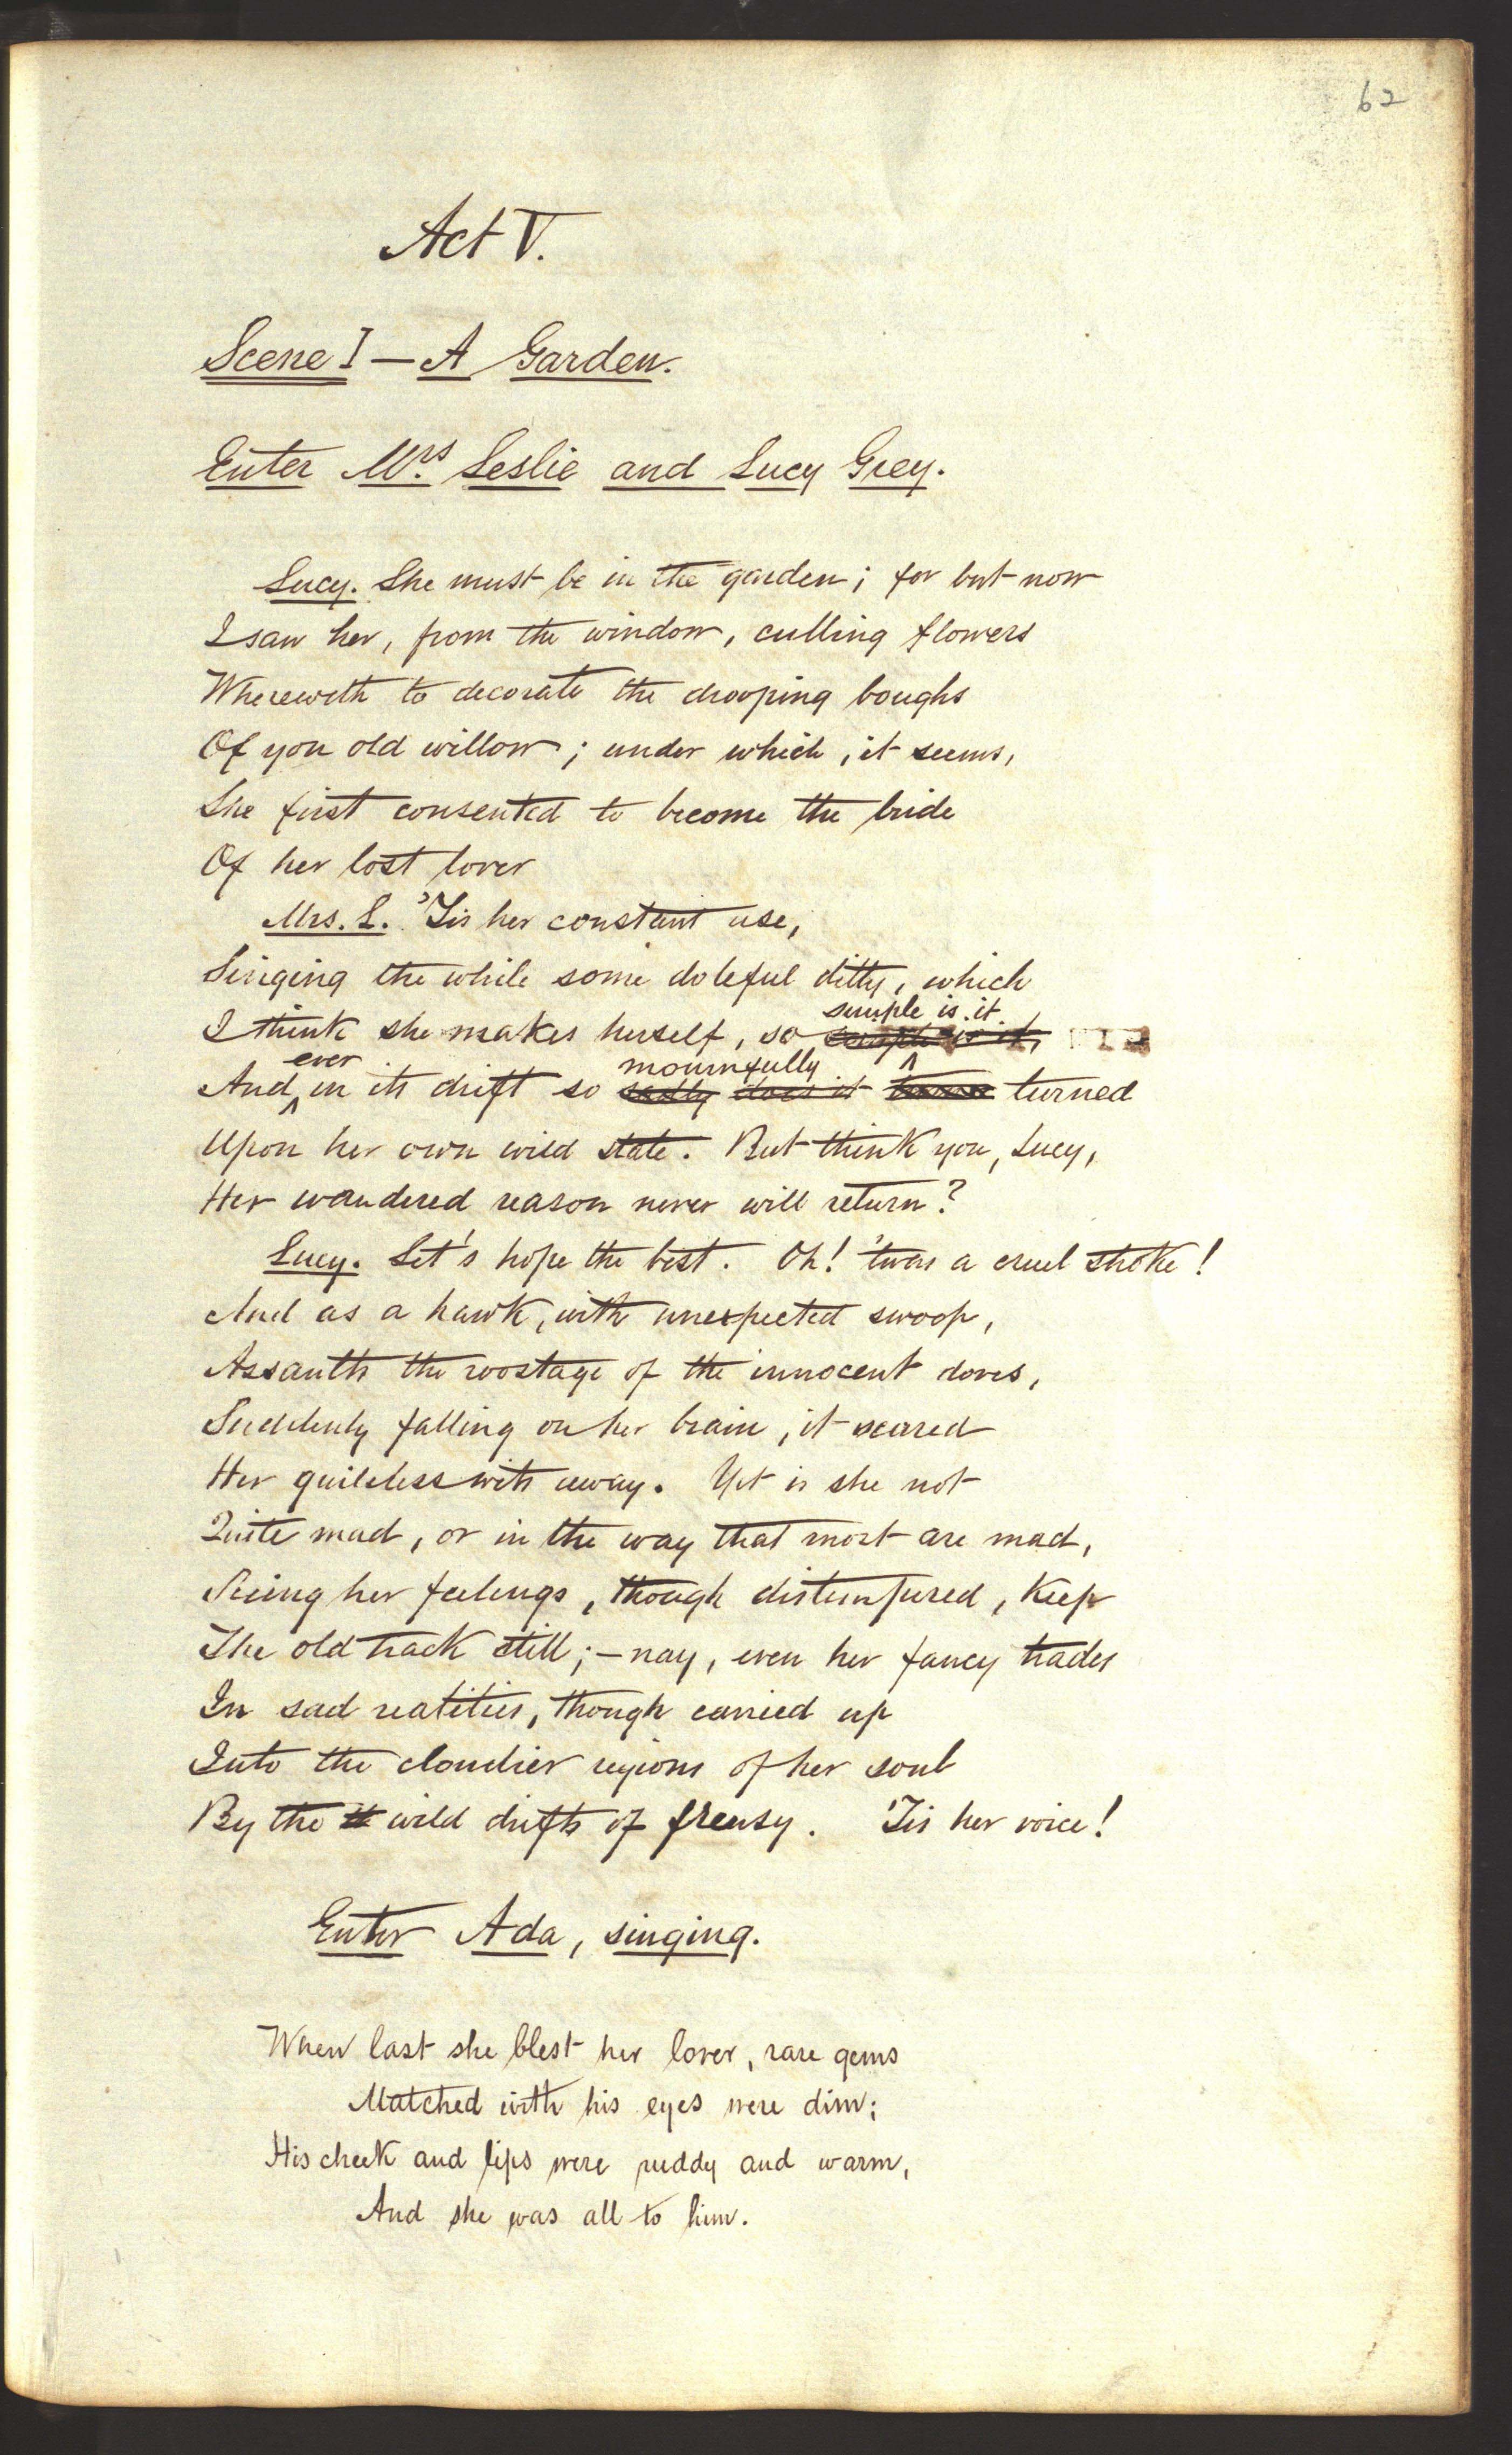 62
Act V.
Scene I — A Garden.
Enter Mrs. Leslie and Lucy Grey.
Lucy. She must be in the garden; for but now
I saw her, from the window, culling flowers
Wherewith to decorate the drooping boughs
Of yon old willow; under which, it seems,
She first consented to become the bride
Of her lost lover
Mrs. L. 'Tis her constant use,
Singing the while some doleful ditty, which
simple is it
I think she makes herself, so simple is it,
ever mournfully
And in its drift so sadly does it turned
Upon her own wild state. But think you, Lucy,
Her wandered reason never will return?
Lucy. Let's hope the best. Oh! 'twas a cruel stroke!
And as a hawk, with unexpected swoop,
Assaults the roostage of the innocent doves,
Suddenly falling on her brain, it scared
Her guileless wits away. Yet is she not
Quite mad, or in the way that most are mad,
Seeing her feelings, though distempered, keep
The old track still; — nay, even her fancy trades
In sad realities, though carried up
Into the cloudier regions of her soul
By the wild drifts of frensy. 'Tis her voice!
Enter Ada, singing.
When last she blest her lover, rare gems
Matched with his eyes were dim;
His cheek and lips were ruddy and warm,
And she was all to him.